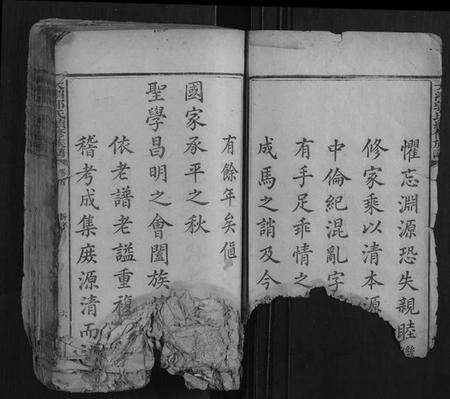 懼忘淵源恐失親睦
修家乘以清本源
中倫紀混亂字
有手足乖情之
成馬之誚及今
有餘年矣值
國家承平之秋
聖學昌明之會闔族
依老譜老謚重複
稽考成集庶源清而